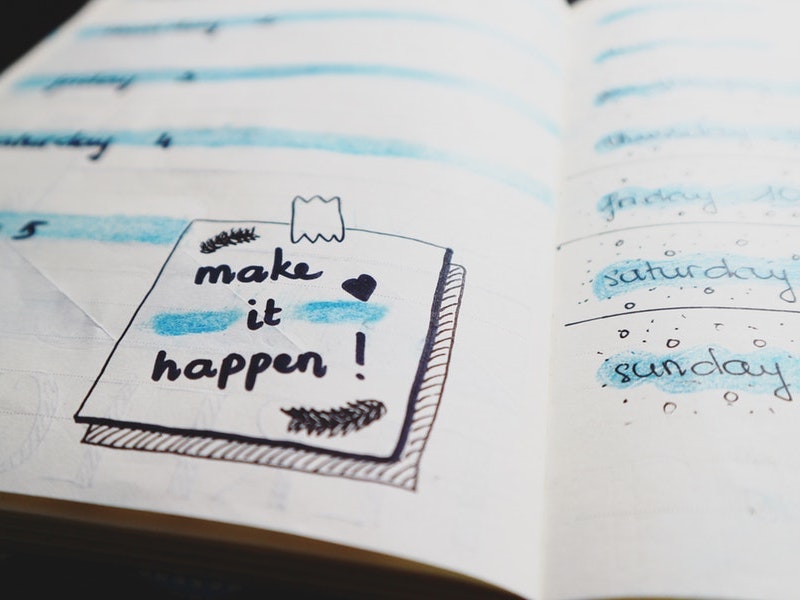 friday
saturday 4
5
make
it
happen !
thursday
friday 10
saturday
sunday